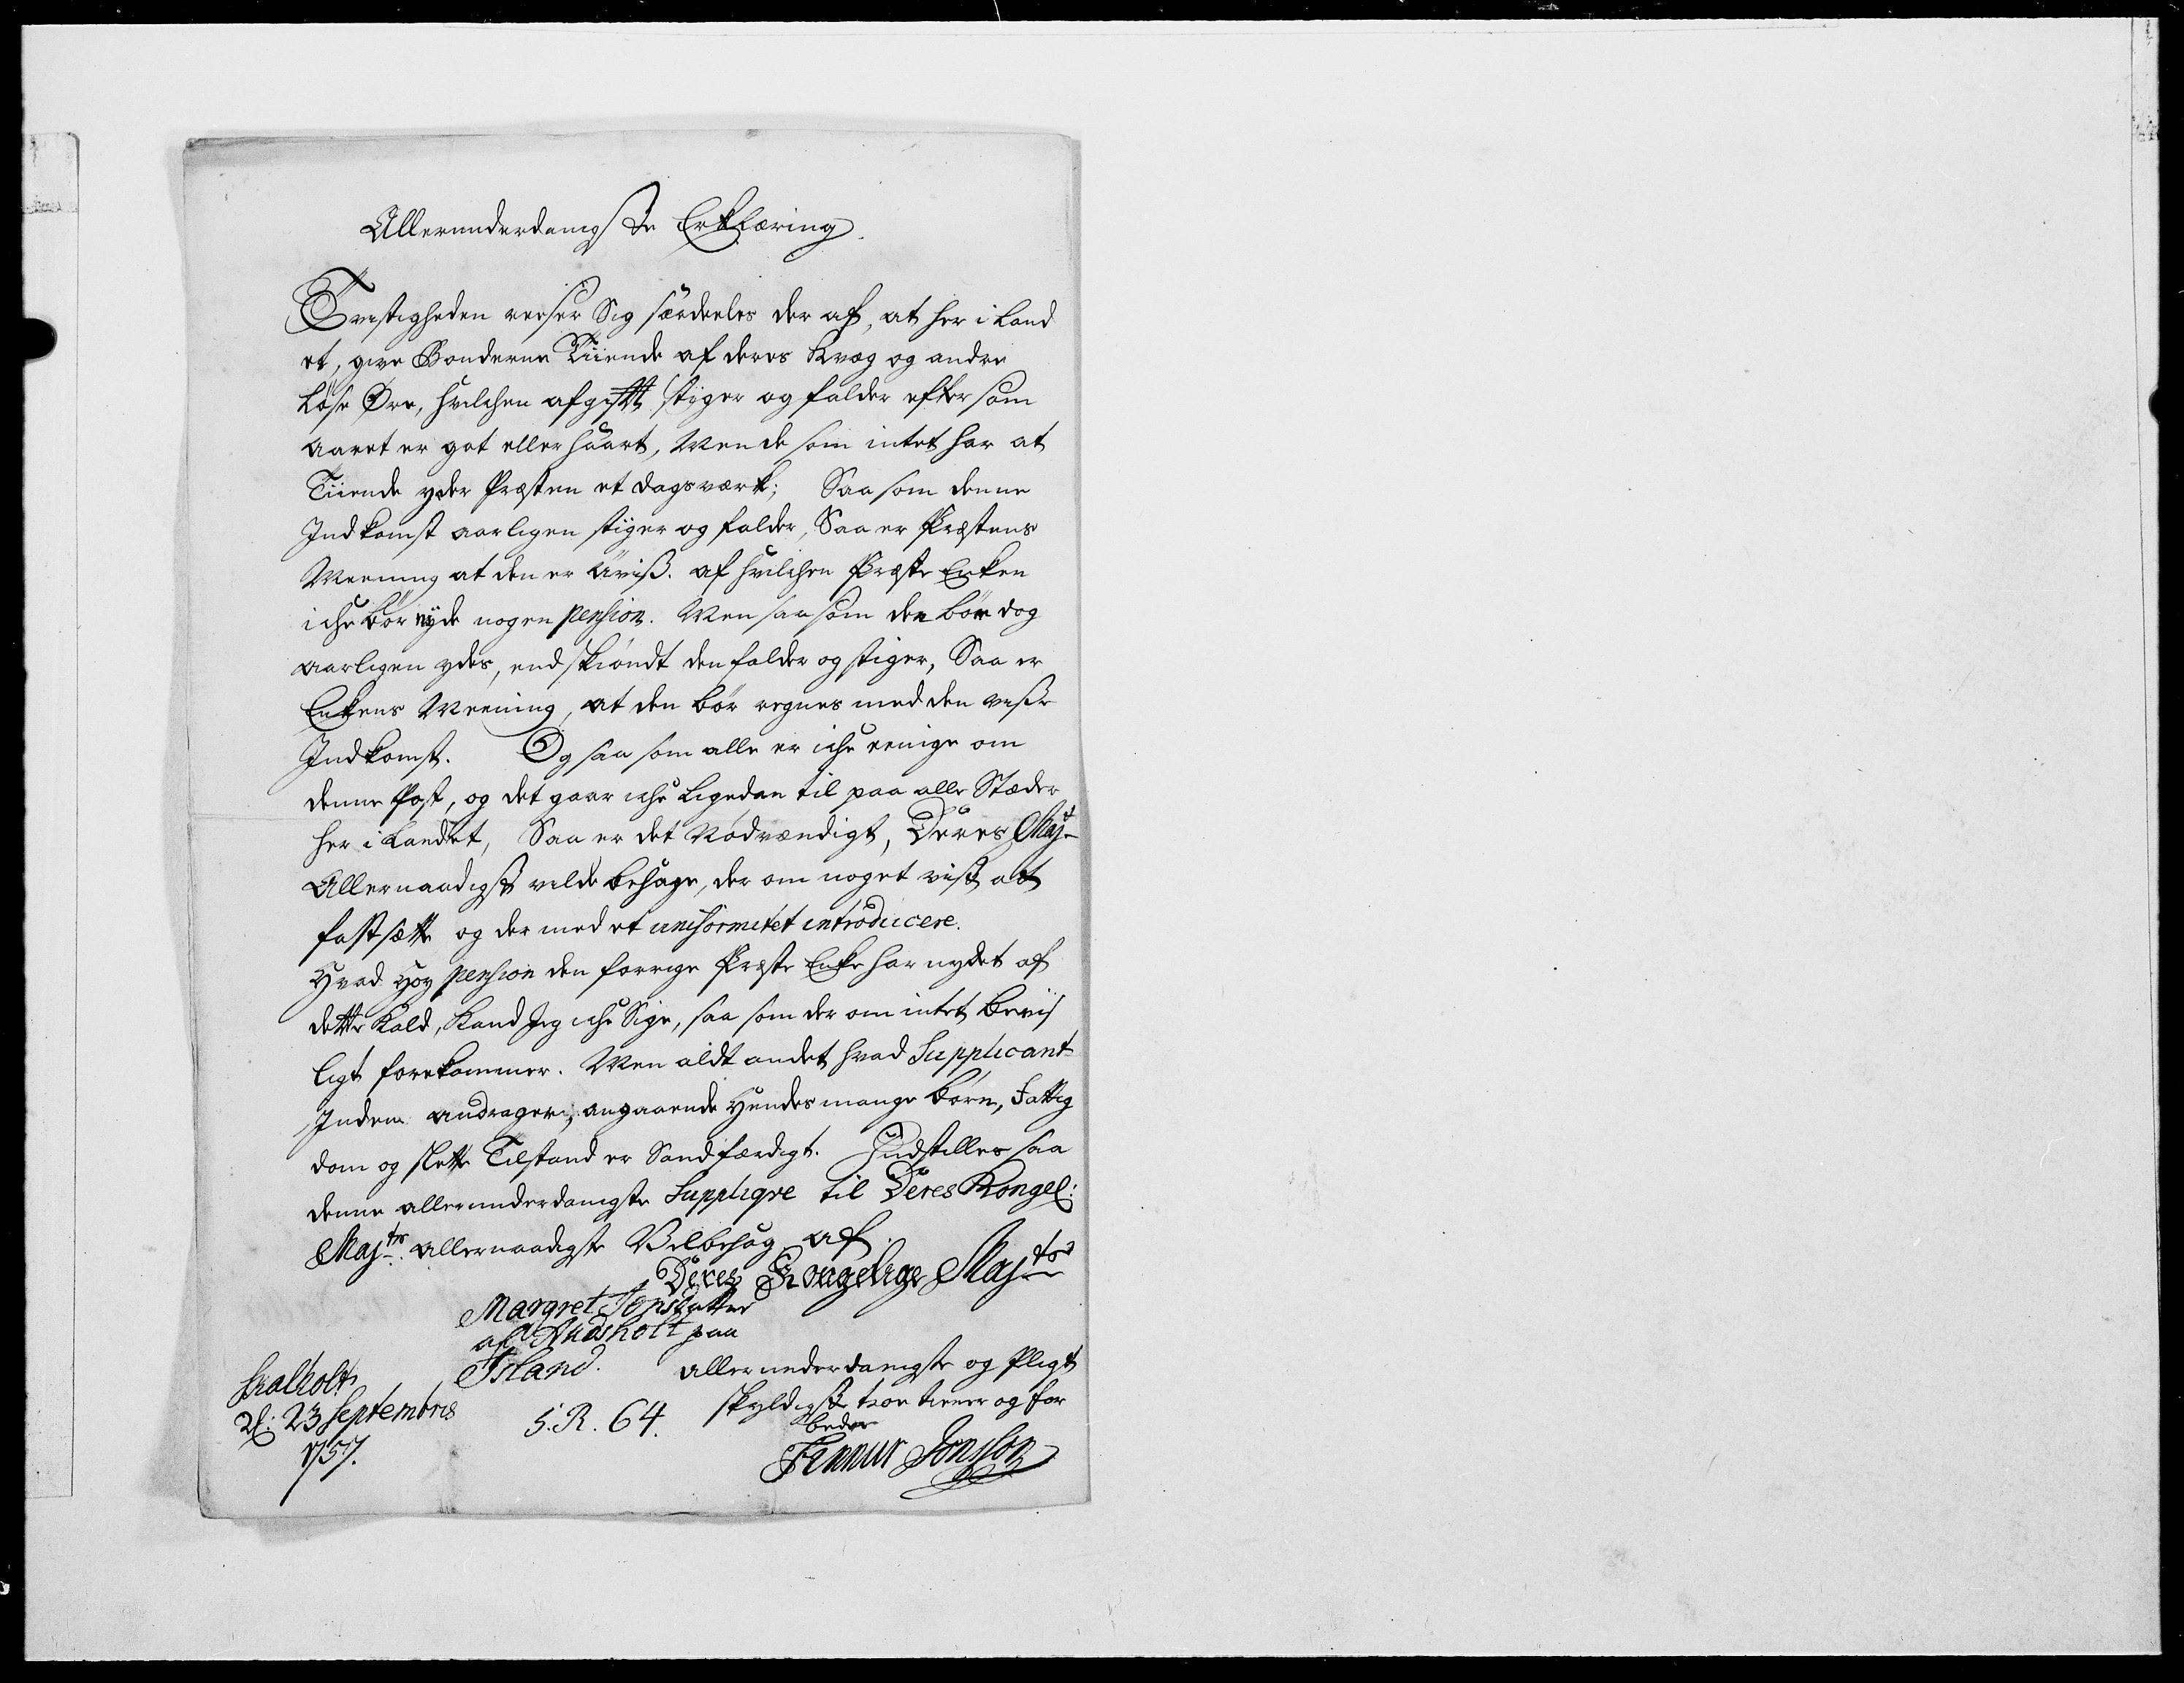 Allerunderdanigste Erklæring.
Tvistigheden reiser Sig særdeeles der af, at her i Land
et, give Bønderne Tiiende af deres Kvæg og andre
Løse Øre, hvilchen afgift stiger og falder efter som
Aaret er got eller haart, Men de som intet har at
Tiiende yder Præsten et dagsværk; Saa som denne
Indkomst aarligen stiger og falder, Saa er Præstens
Meening at den er Uviß. af hvilchen Præste Enken
iche bør nyde nogen pension. Men saa som den bør dog
aarligen ydes, endskiøndt den falder og stiger, Saa er
Enkens Meening, at den bør regnes med den visse
Indkomst. Og saa som alle er iche eenige om
denne Post, og det gaar iche ligedan til paa alle Stæder
her i Landet, Saa er det Nødvændigt, Deres Majt
Allernaadigst vilde behage, der om noget vist at
fastsætte og der med et uniformitet introducere.
Hvad Høy pension den forrige Præste Enke har nydet af
dette Kald, Kand Jeg iche Sige, saa som der om intet beviis
ligt forekommer. Men aldt andet hvad Supplicant
Inden andrager, angaaende Hendes mange børn, Fattig
dom og slette Tilstand er Sandfærdigt. Indstilles saa
denne allerunderdanigste Suppliqve til Deres Kongel:
Majts. allernaadigste Velbehag af
Deres Kongelige Majts
Margret Jonsdatter
af Audsholt paa
Island.
allerunderdanigste og Pligt
skyldigste troe tiener og for
beder
Skalholt
d: 23 Septembris
1757.
S. R. 64.
Finnur Jonsson